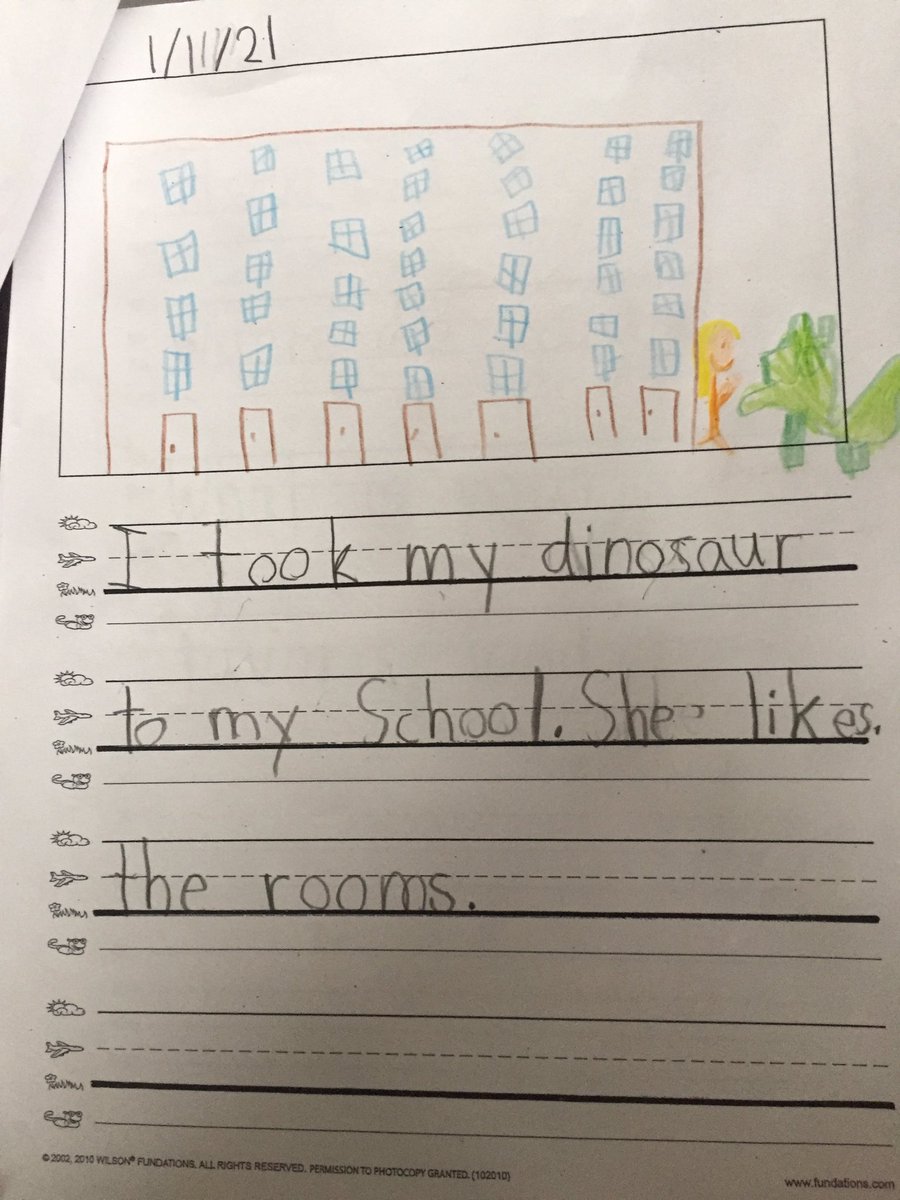 1/11/21
I took my dinosaur
to my School. She likes.
the rooms.
© 2002, 2010 WILSON® FUNDATIONS. ALL RIGHTS RESERVED. PERMISSION TO PHOTOCOPY GRANTED. (102010)
www.fundations.com